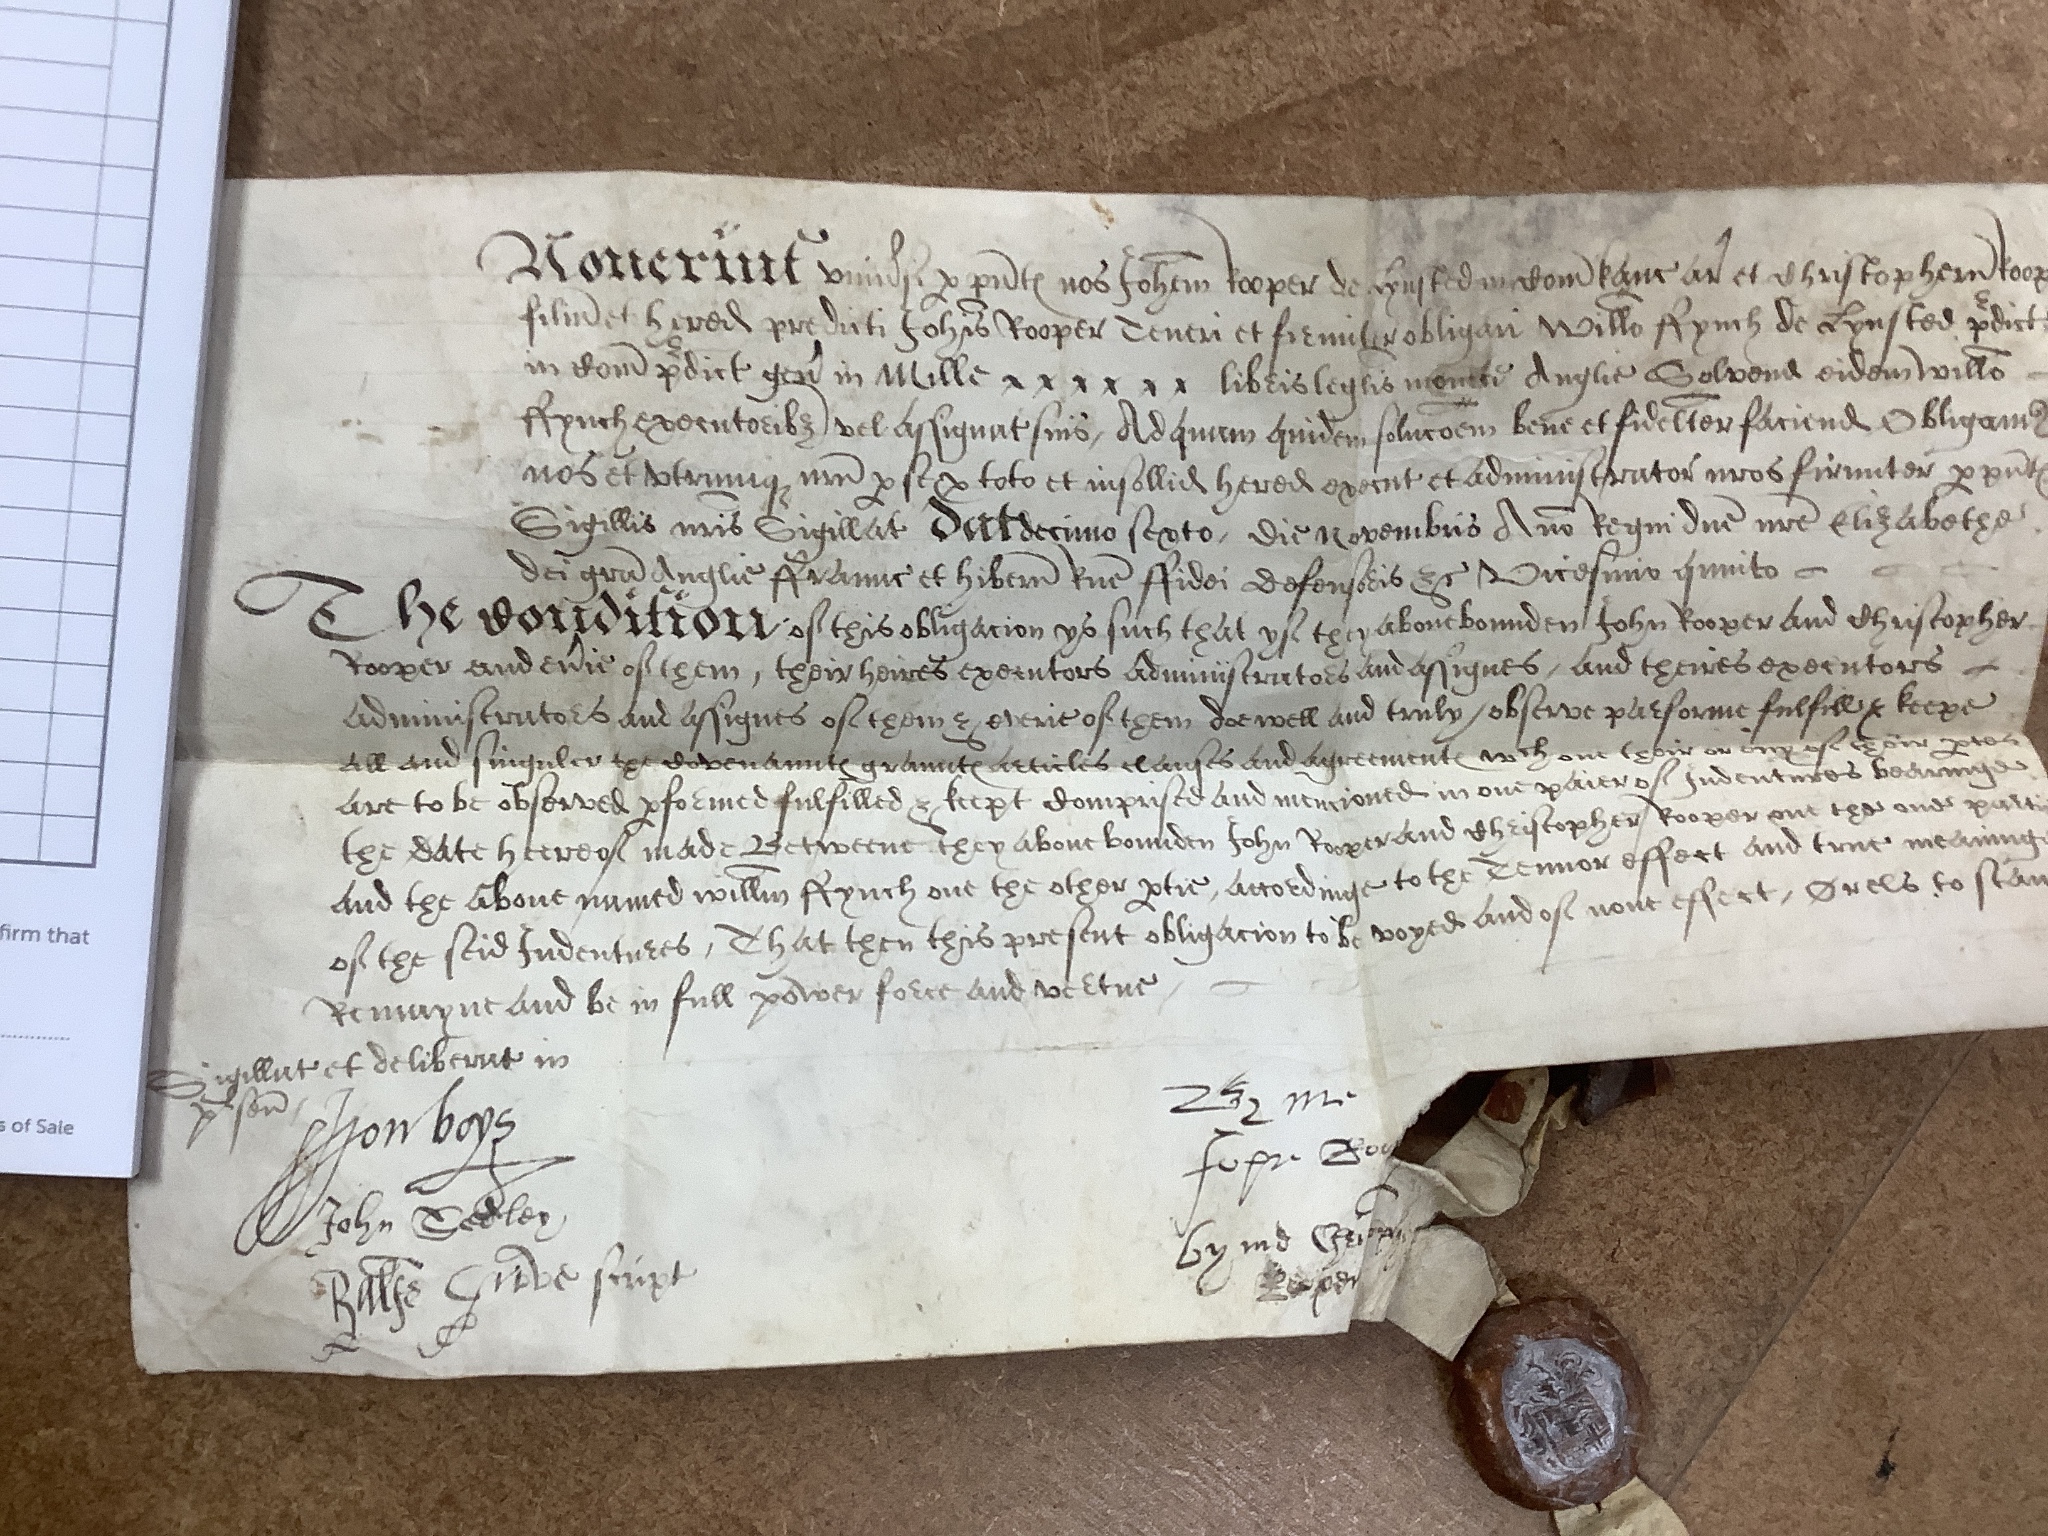 Nouerint vniusi p pnt nos Johem Rooper de Lynsted in Com Kanc ar et Christopheru Roop
filiu et hered predicti Johis Rooper Teneri et firmiter obligari Willo ffynch de Lynsted pdict
in Com pdict gen in Mille x x x x x x libris leglis monete Anglie Solvend eidem Willo
ffynch executoribz vel assignat suis, Ad quam quidem solucoem bene et fidelter faciend Obligam
nos et vtrumq nrm p se p toto et in sollid hered execut et administrator nros firmiter p pnt
Sigillis nris Sigillat Dat decimo sexto, die Novembris Ano Regni dne nre Elizabethe
Dei gra Anglie ffranc et Hibern Rne ffidei defensoris &c Vicesimo quinto
The Condition of this obligacion ys such that yf they aboue bounden John Rooper and Christopher
Rooper and eu'ie of them, their heires executors administrators and assignes, and theires executors
administrators and assignes of them & everie of them doe well and truly, observe parforme fulfill & keepe
all and singuler the Covenaunt graunt articles clauses and agreement wch one their or any of their ptes
are to be observed pformed fulfilled & kept Comprised and mencioned in one paier of Indentures bearinge
the date heereof made Betweene they aboue bounden John Rooper and Christopher Rooper one the one partie
And the aboue named willm ffynch one the other ptie, accordinge to the Tennor effect and true meaninge
of the seid Indentures, That then this present obligacion to be voyed and of none effect, Or els to stan
Remayne and be in full power force and vertue
Sigillat et deliberat in
p'sen
Jhon boys
John Tedley
Ralfe script
me
Jopr Roo
by me Chr
Rooper
firm that
s of Sale